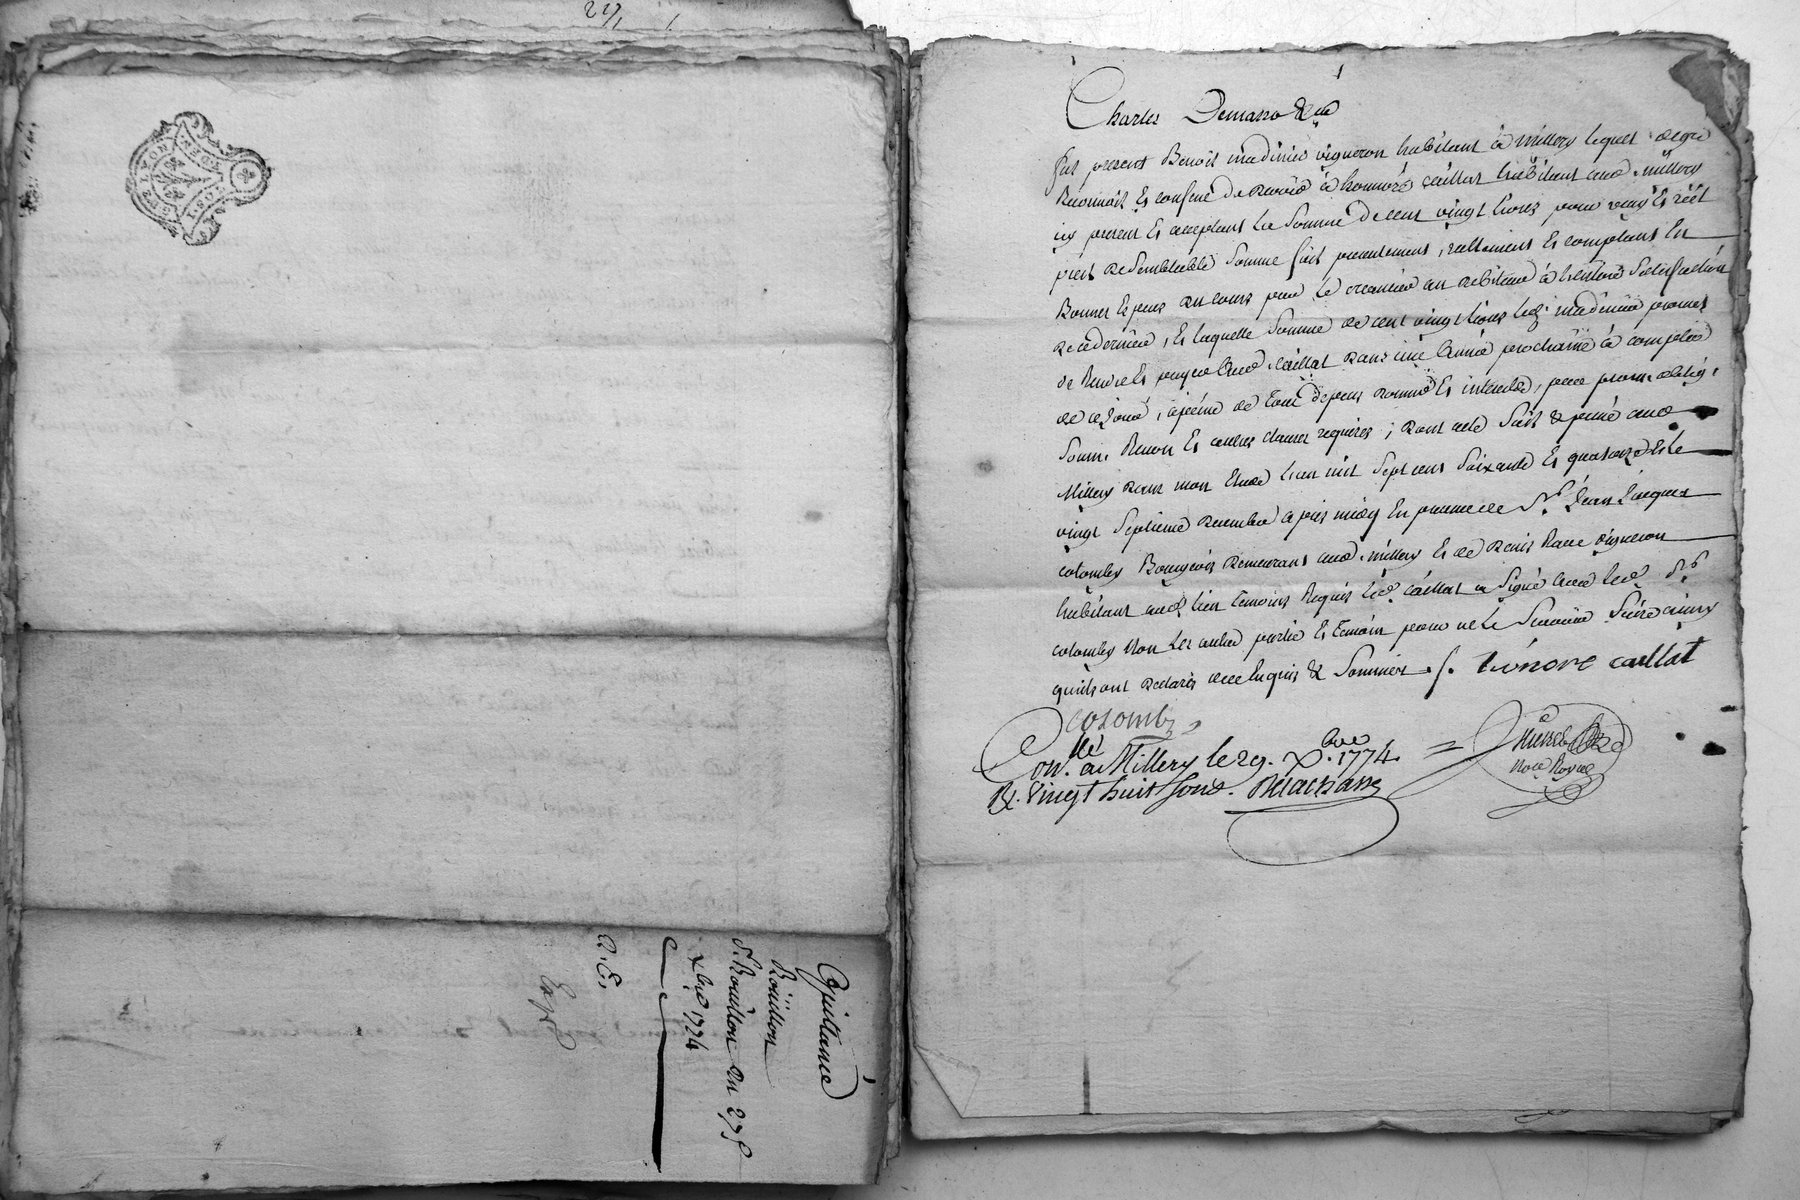 GNRLITE LYON
DEUX SOLS
Quittance
Roüillon
à Roüillon du 27
xbre 1774
D. E.
Expé
Charles Demasso &a
fut present Benoit madinier vigneron habitant à millery lequel de gré
Reconnoit Et confesse devoir à honnoré caillat habitant aud. millery
icy present Et acceptant La Somme de cent vingt livres pour vray Et réel
prêt de Semblable Somme fait presentement, réellement Et comptant En
Bonnes Especes du cours par le creancier au debiteur à L'entiere Satisfaction
de ce dernier, Et laquelle Somme de cent vingt livres led. madinier promet
de Rendre Et payer aud. caillat dans une année prochaine à compter
de ce jour, à peine de tous depens dommages Et interets, par prom. oblig.
Soum. Renon Et autres clauses requises; dont acte fait & passé aud.
Millery dans mon Etude L'an mil Sept cent Soixante Et quatorze Et le
vingt Septieme decembre après midy En presence de Sr. Jean Jacques
colomby Bourgeois demeurant aud. millery Et de denis vigneron
habitant aud. lieu temoins Requis led. caillat a Signé avec led. Sr.
colomby Non Les autres partie Et temoin pour ne le Sçavoir faire ainsy
qu'ils ont declaré de ce Enquis & Sommés. f. honore caillat
colomby
Conlé. à Millery le 29. Xbre. 1774.
R. Vingt huit Sous. Delachasse
Nore Royal